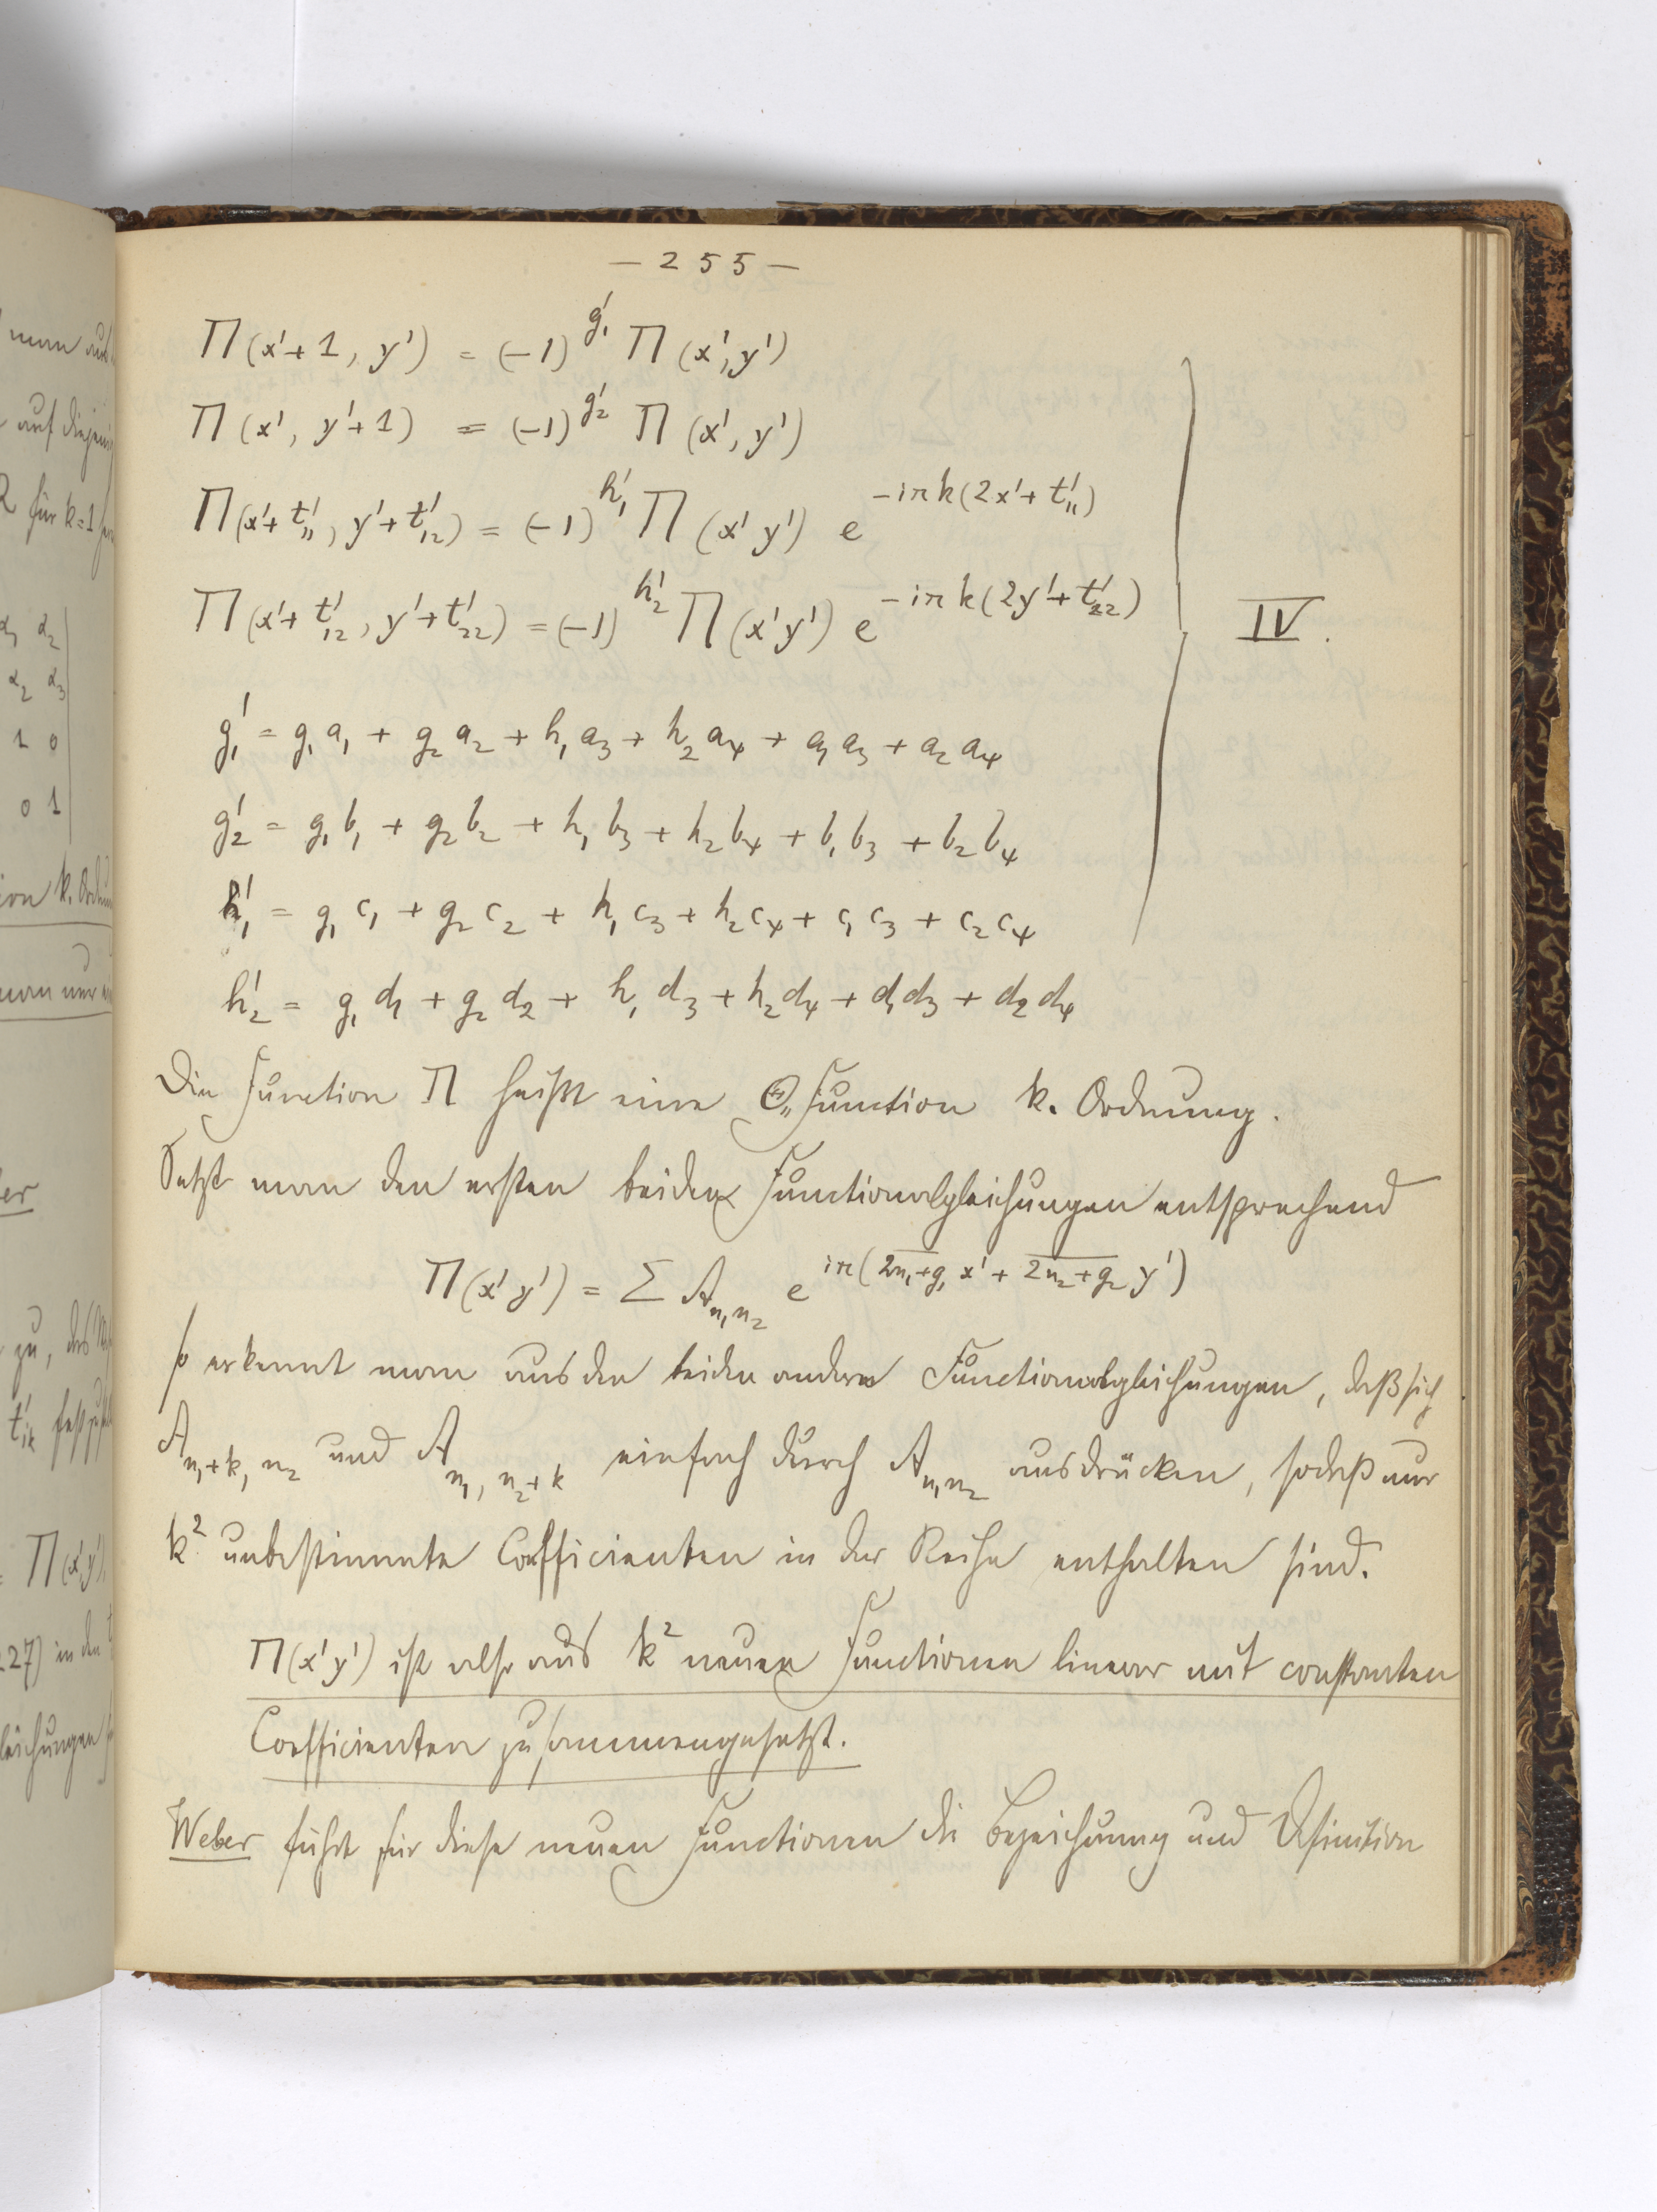 — 255 —
Π(x'+1, y') = (-1)^{g'_1} Π(x', y')
Π(x', y'+1) = (-1)^{g'_2} Π(x', y')
Π(x'+t'_{11}, y'+t'_{12}) = (-1)^{h'_1} Π(x' y') e^{-iπk(2x'+t'_{11})}
Π(x'+t'_{12}, y'+t'_{22}) = (-1)^{h'_2} Π(x' y') e^{-iπk(2y'+t'_{22})}
IV.
g'_1 = g_1 a_1 + g_2 a_2 + h_1 a_3 + h_2 a_4 + a_1 a_3 + a_2 a_4
g'_2 = g_1 b_1 + g_2 b_2 + h_1 b_3 + h_2 b_4 + b_1 b_3 + b_2 b_4
h'_1 = g_1 c_1 + g_2 c_2 + h_1 c_3 + h_2 c_4 + c_1 c_3 + c_2 c_4
h'_2 = g_1 d_1 + g_2 d_2 + h_1 d_3 + h_2 d_4 + d_1 d_3 + d_2 d_4
Die Function Π heißt eine Θ„Function k. Ordnung.
Setzt man den ersten beiden Functionalgleichungen entsprechend
Π(x' y') = Σ A_{n_1 n_2} e^{iπ(\overline{2n_1+g_1} x' + \overline{2n_2+g_2} y')}
so erkennt man aus den beiden andern Functionalgleichungen, daß sich
A_{n_1+k, n_2} und A_{n_1, n_2+k} einfach durch A_{n_1 n_2} ausdrücken, sodaß nur
k² unbestimmte Coefficienten in der Reihe enthalten sind.
Π(x' y') ist also aus k² neuen Functionen linear mit constanten
Coefficienten zusammengesetzt.
Weber führt für diese neuen Functionen die Bezeichnung und Definition